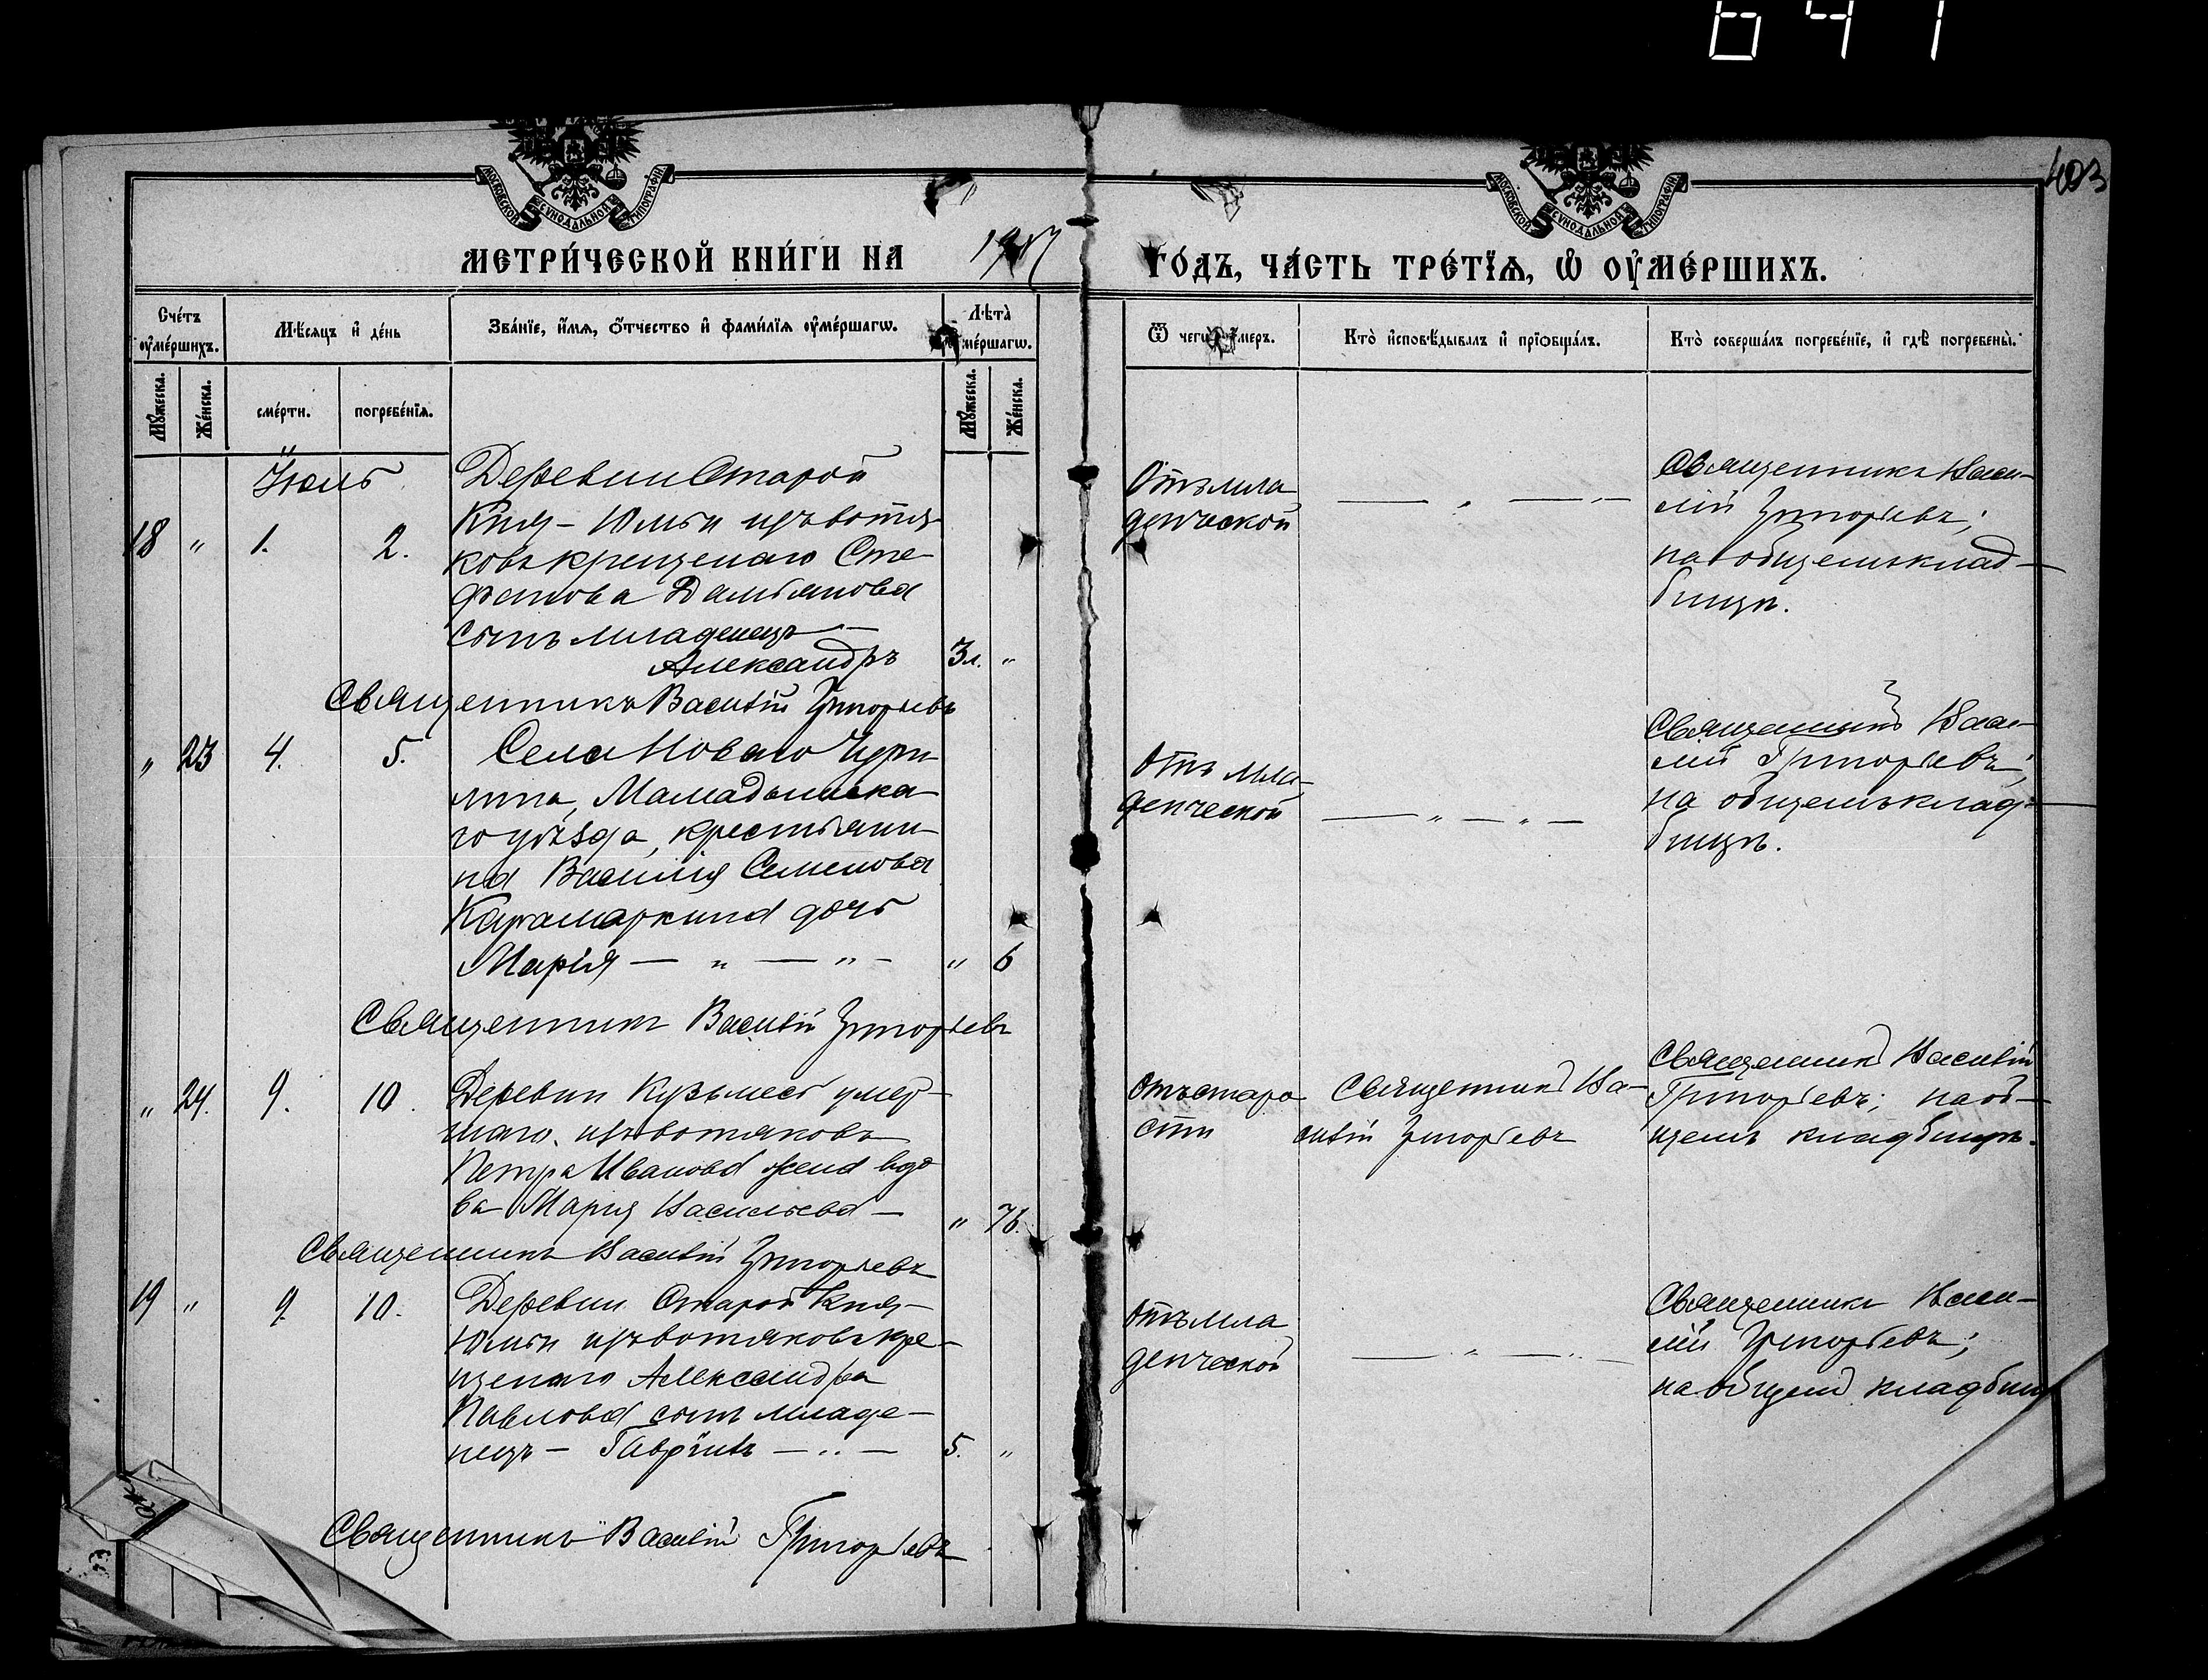 641
403
МОСКОВСКОЙ СѴНОДАЛЬНОЙ ТИПОГРАФІИ
МОСКОВСКОЙ СѴНОДАЛЬНОЙ ТИПОГРАФІИ
МЕТРИ́ЧЕСКОЙ КНИ́ГИ НА
ГО́ДЪ, ЧА́СТЬ ТРЕ́ТЇѦ, Ѡ҆ ОУ҆МЕ́РШИХЪ.
Сче́тъ оу҆ме́ршихъ.
Мѣ́сяцъ и҆ де́нь
Зва́нїе, и҆́мѧ, ѻ҆́тчество и҆ фами́лїѧ оу҆ме́ршагѡ.
Лѣ́та̀ ме́ршагѡ.
Му́жеска.
Же́нска.
сме́рти.
погребе́нїѧ.
Му́жеска.
Же́нска.
Ѿ чегѡ̀ мѐръ.
Кто̀ и҆сповѣ́дывалъ и҆ прїѡбща́лъ.
Кто̀ соверша́лъ погребе́нїе, и҆ гдѣ̀ погребены̀.
Іюль
18 " 1. 2.
Деревни Старой
Кня-Юмьи изъ вотя-
ковъ крещенаго Сте-
фанова Дамьянова
сынъ младенецъ —
Александръ 3л. "
Отъ мла
денческой
— " — " —
Священникъ Васи-
лій Григорьевъ;
на общемъ клад-
бищѣ.
Священникъ Василій Григорьевъ
" 23 4. 5.
Села Новаго Чури-
лина, Мамадышска-
го уѣзда, крестьяни-
на Василія Семенова
Карамаркина дочь
Марія — " — " — " 6
Отъ мла-
денческой
— " — " —
Священникъ Васи-
лій Григорьевъ;
на общемъ клад-
бищѣ.
Священникъ Василій Григорьевъ
" 24. 9. 10.
Деревни Кузьмесь умер-
шаго изъ вотяковъ
Петра Иванова жена вдо
ва Марія Васильева — " 76.
Отъ старо
сти
Священникъ Ва-
силій Григорьевъ
Священникъ Василій
Григорьевъ; на об-
щемъ кладбищѣ.
Священникъ Василій Григорьевъ
19 " 9. 10.
Деревни Старой Кня-
Юмьи изъ вотяковъ кре-
щенаго Александра
Павлова сынъ младе-
нецъ — Гавріилъ — " — 5. "
Отъ мла
денческой
— " — " —
Священникъ Васи-
лій Григорьевъ;
на общемъ кладбищ
Священникъ Василій Григорьевъ